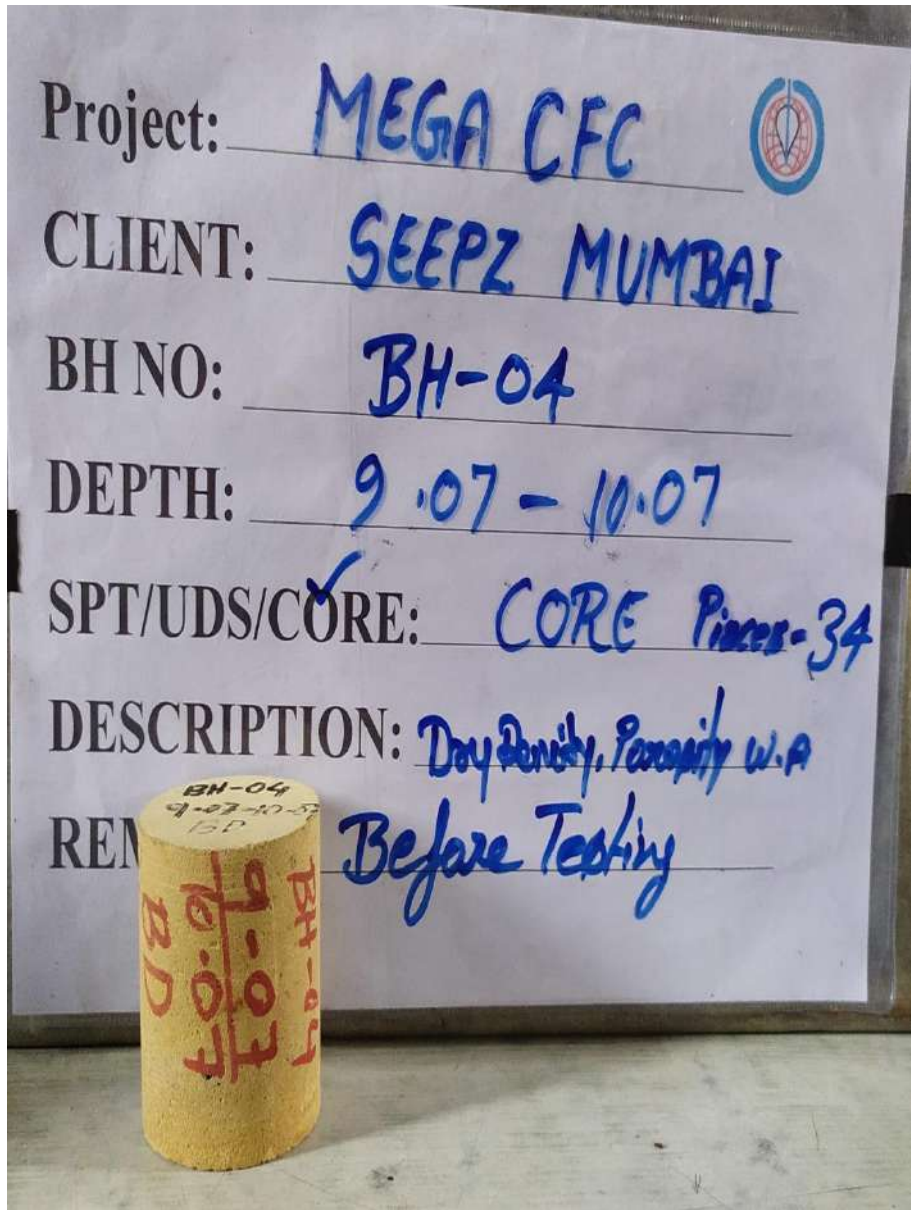 Project: MEGA CFC
CLIENT: SEEPZ MUMBAI
BH NO: BH-04
DEPTH: 9.07 - 10.07
SPT/UDS/CORE: CORE Pieces-34
DESCRIPTION: Dry Density, Porosity W.A
REM Before Testing
BH-04
BD
BH-04
9-07
10.07
BD